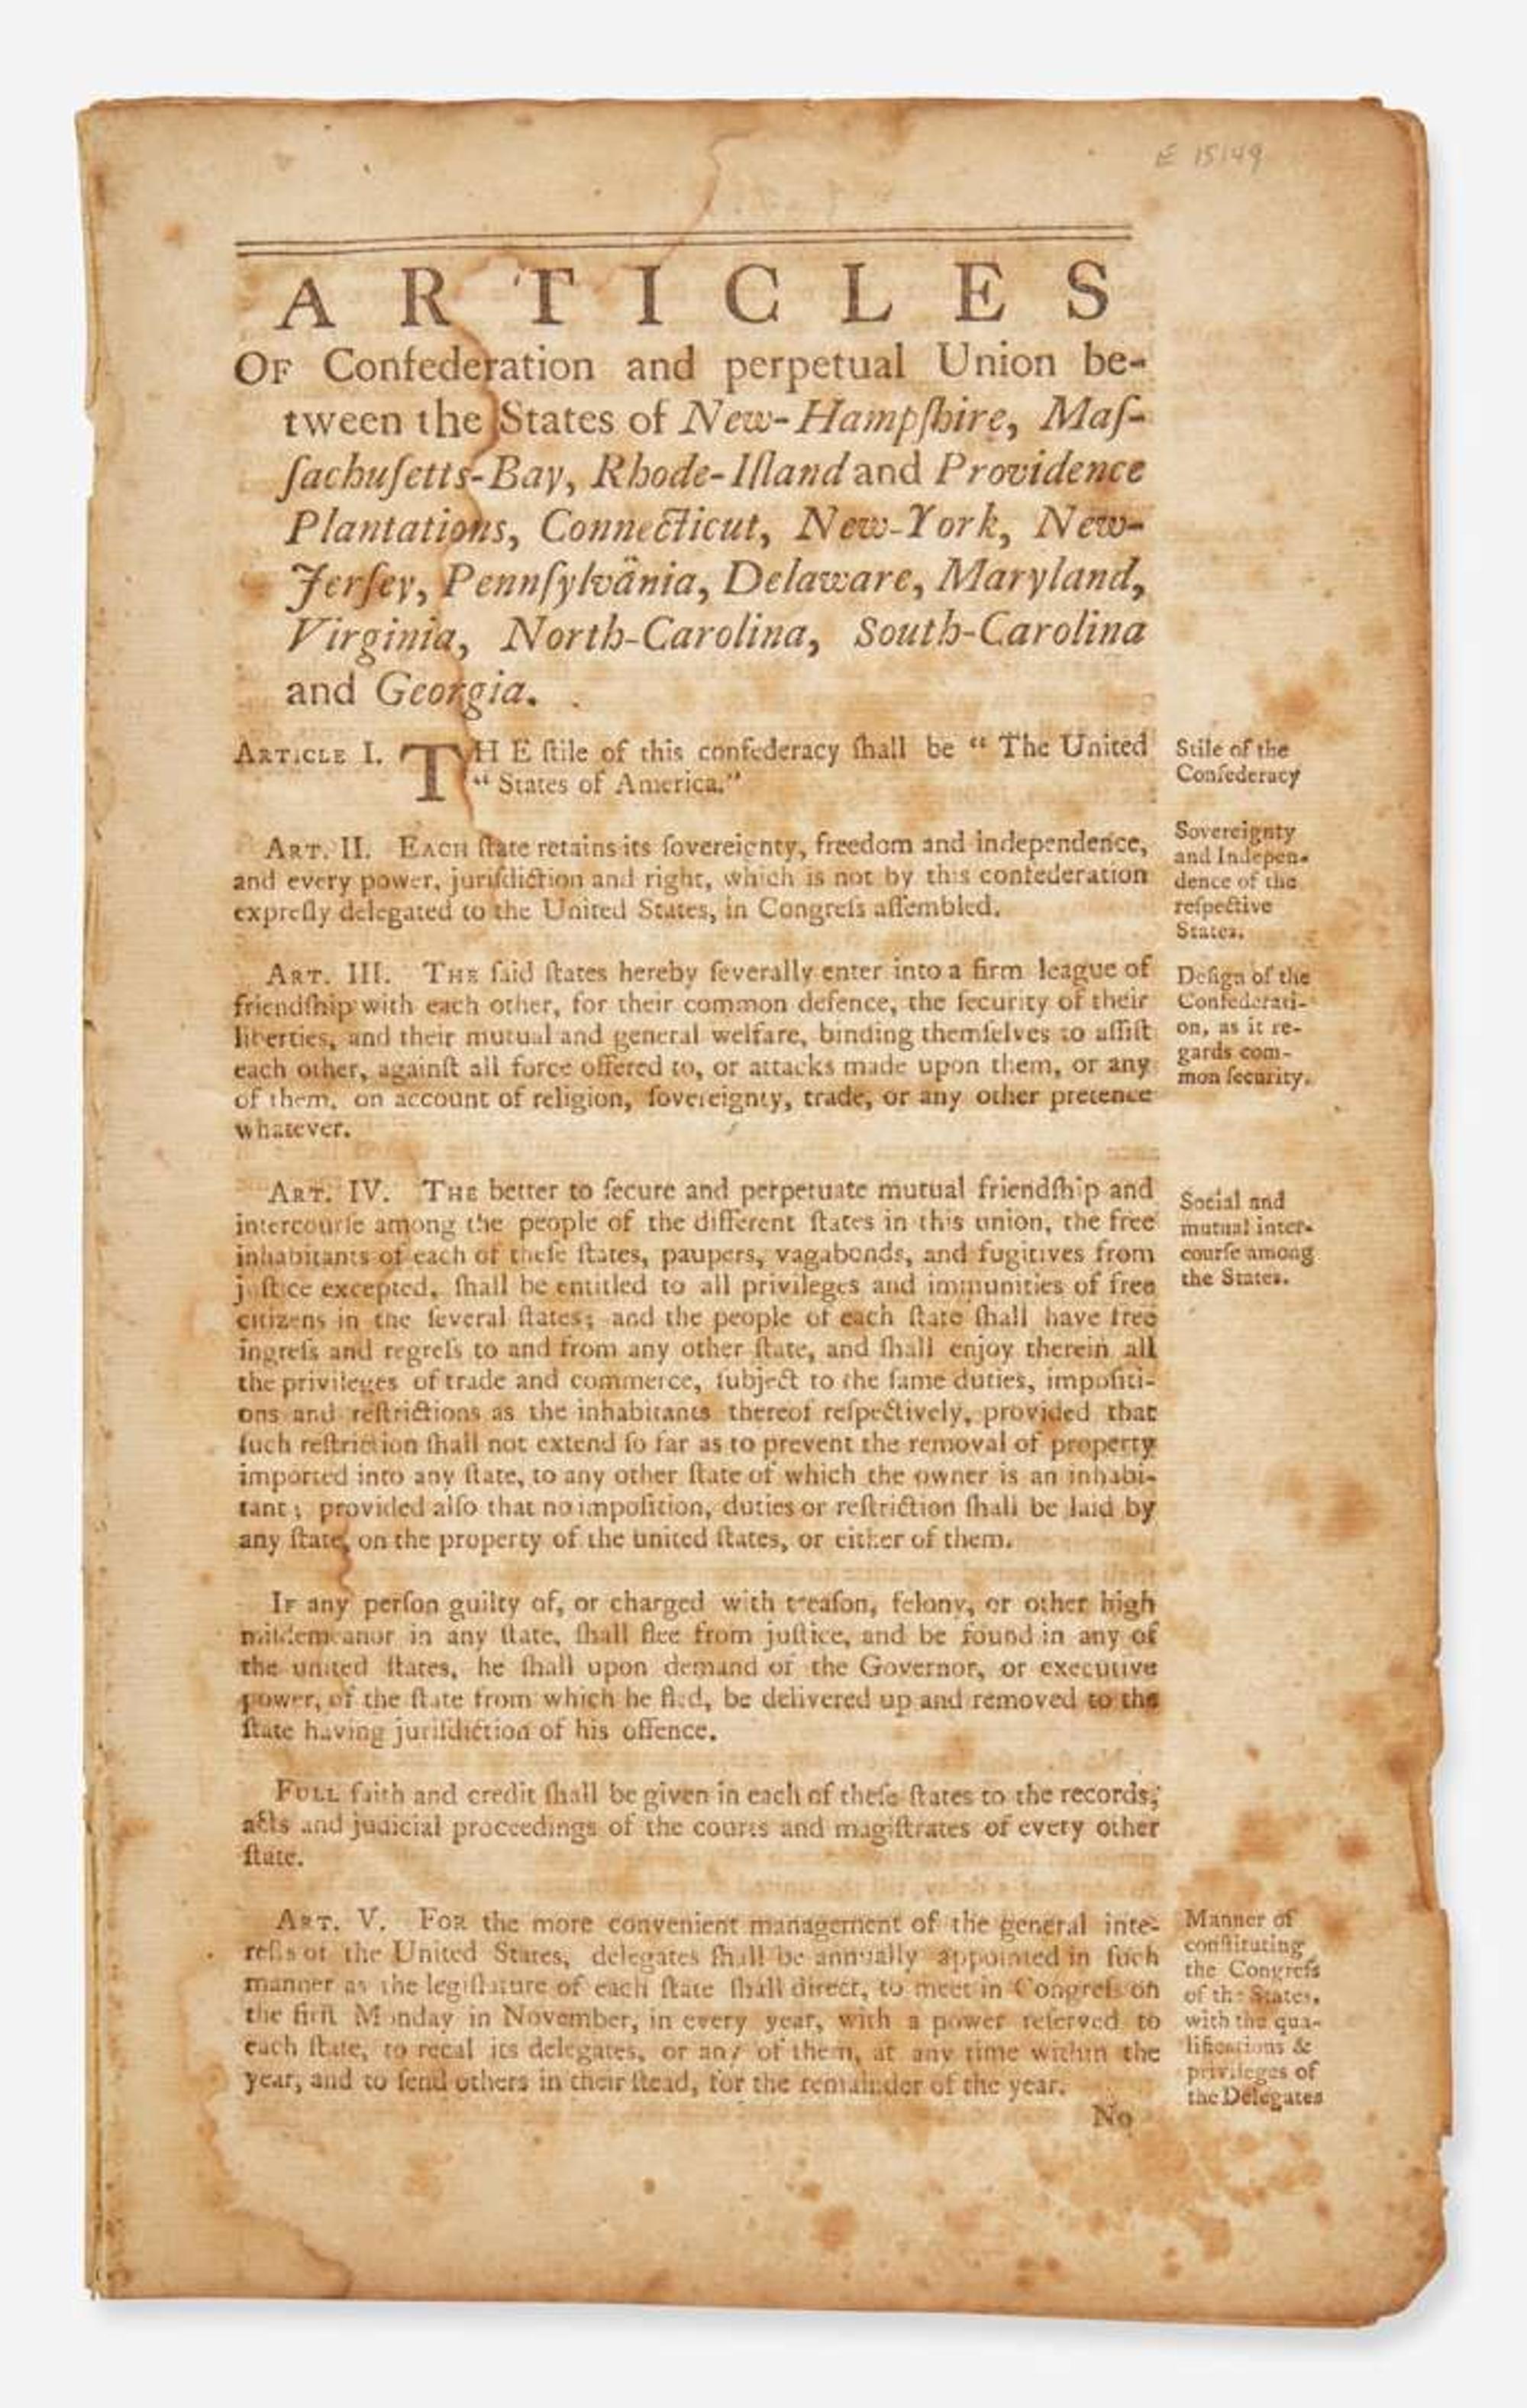 E 15149
ARTICLES
OF Confederation and perpetual Union be-
tween the States of New-Hampſhire, Maſ-
ſachuſetts-Bay, Rhode-Iſland and Providence
Plantations, Connecticut, New-York, New-
Jerſey, Pennſylvänia, Delaware, Maryland,
Virginia, North-Carolina, South-Carolina
and Georgia.
ARTICLE I. THE ſtile of this confederacy ſhall be “ The United
“ States of America.”
Stile of the
Confederacy
ART. II. EACH ſtate retains its ſovereignty, freedom and independence,
and every power, juriſdiction and right, which is not by this confederation
expreſly delegated to the United States, in Congreſs aſſembled.
Sovereignty
and Indepen-
dence of the
reſpective
States.
ART. III. THE ſaid ſtates hereby ſeverally enter into a firm league of
friendſhip with each other, for their common defence, the ſecurity of their
liberties, and their mutual and general welfare, binding themſelves to aſſiſt
each other, againſt all force offered to, or attacks made upon them, or any
of them, on account of religion, ſovereignty, trade, or any other pretence
whatever.
Deſign of the
Confederati-
on, as it re-
gards com-
mon ſecurity.
ART. IV. THE better to ſecure and perpetuate mutual friendſhip and
intercourſe among the people of the different ſtates in this union, the free
inhabitants of each of theſe ſtates, paupers, vagabonds, and fugitives from
juſtice excepted, ſhall be entitled to all privileges and immunities of free
citizens in the ſeveral ſtates; and the people of each ſtate ſhall have free
ingreſs and regreſs to and from any other ſtate, and ſhall enjoy therein all
the privileges of trade and commerce, ſubject to the ſame duties, impoſiti-
ons and reſtrictions as the inhabitants thereof reſpectively, provided that
ſuch reſtriction ſhall not extend ſo far as to prevent the removal of property
imported into any ſtate, to any other ſtate of which the owner is an inhabi-
tant; provided alſo that no impoſition, duties or reſtriction ſhall be laid by
any ſtate, on the property of the united ſtates, or either of them.
Social and
mutual inter-
courſe among
the States.
IF any perſon guilty of, or charged with treaſon, felony, or other high
miſdemeanor in any ſtate, ſhall flee from juſtice, and be found in any of
the united ſtates, he ſhall upon demand of the Governor, or executive
power, of the ſtate from which he fled, be delivered up and removed to the
ſtate having juriſdiction of his offence.
FULL faith and credit ſhall be given in each of theſe ſtates to the records,
acts and judicial proceedings of the courts and magiſtrates of every other
ſtate.
ART. V. FOR the more convenient management of the general inte-
reſts of the United States, delegates ſhall be annually appointed in ſuch
manner as the legiſlature of each ſtate ſhall direct, to meet in Congreſs on
the firſt Monday in November, in every year, with a power reſerved to
each ſtate, to recal its delegates, or any of them, at any time within the
year, and to ſend others in their ſtead, for the remainder of the year.
Manner of
conſtituting
the Congreſs
of the States,
with the qua-
lifications &
privileges of
the Delegates
No